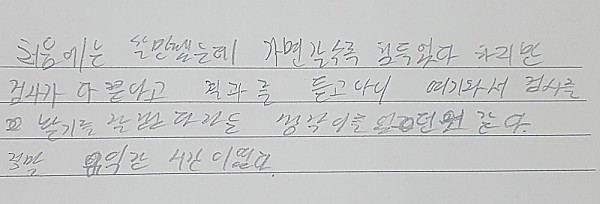 처음에는 살만했는데 가면갈수록 힘득었다 하지만
검사가 다 끝나고 결과를 듣고나니 여기와서 검사를
받기를 잘 한 다가는 생각이를 었던 것 같다.
정말 유익한 시간이었다.